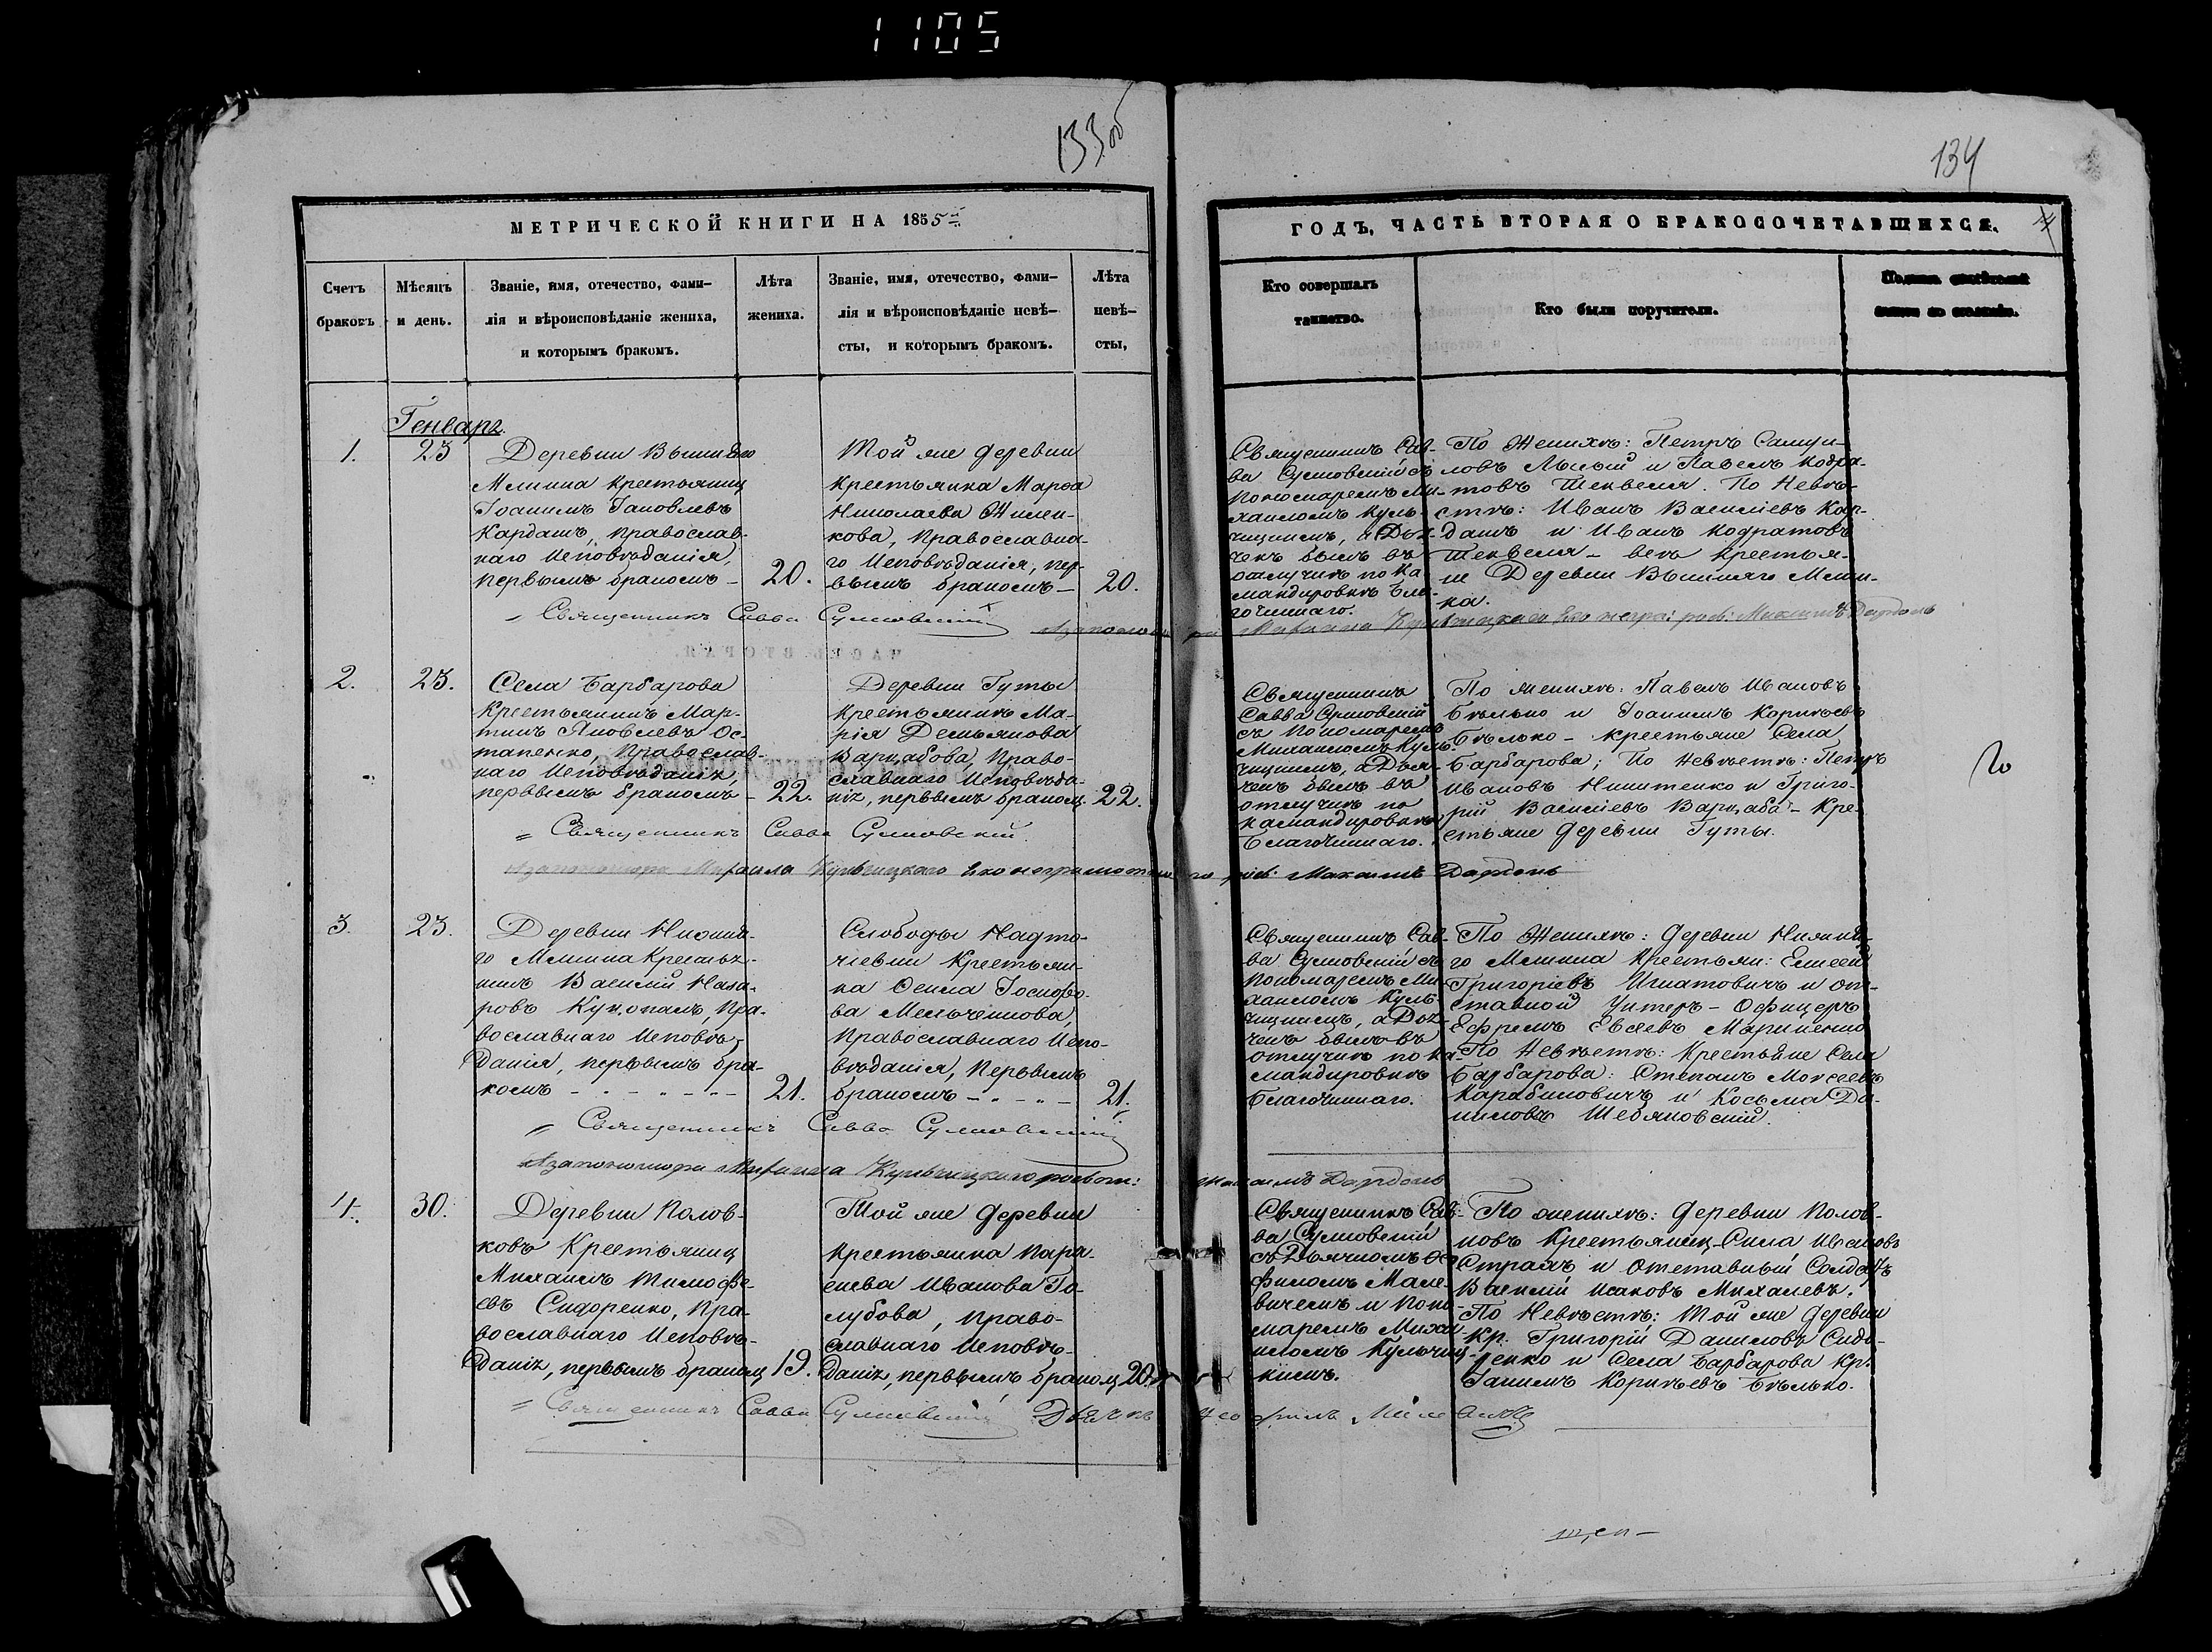 1105
133 об
134
МЕТРИЧЕСКОЙ КНИГИ НА 1855
ГОДЪ, ЧАСТЬ ВТОРАЯ О БРАКОСОЧЕТАВШИХСЯ.
Счетъ
браковъ
Мѣсяцъ
и день.
Званіе, имя, отечество, фами-
лія и вѣроисповѣданіе жениха,
и которымъ бракомъ.
Лѣта
жениха.
Званіе, имя, отечество, фами-
лія и вѣроисповѣданіе невѣ-
сты, и которымъ бракомъ.
Лѣта
невѣ-
сты,
Кто совершалъ
таинство.
Кто были поручители.
Генварь
1.
23
Деревни Вышняго
Млинка Крестьянинъ
Іоакимъ Іаковлевъ
Кардашъ, Православ-
наго Исповѣданія,
первымъ бракомъ –
20.
Той же деревни
Крестьянка Марѳа
Николаева Жилен-
кова, Православна-
го Исповѣданія, пер-
вымъ бракомъ –
20.
Священникъ Сав-
ва Сулковскій съ
Пономаремъ Ми-
хаиломъ Куль-
чицкимъ, а Дья-
чекъ былъ въ
отлучкѣ по Ка-
мандировкѣ Бла-
гочиннаго.
По Женихѣ: Петръ Самуи-
ловъ Лысый и Павелъ Кодра-
товъ Шеквеля. По Невѣ-
стѣ: Иванъ Василіевъ Кар-
дашъ и Иванъ Кодратовъ
Шеквеля – всѣ крестья-
не Деревни Вышняго Млин-
ка.
Священникъ Савва Сулковскій
2.
23.
Села Барбарова
Крестьянинъ Мар-
тинъ Яковлевъ Ос-
тапенко, Православ-
наго Исповѣданія,
первымъ бракомъ –
22.
Деревни Гуты
Крестьянка Ма-
рія Демьянова
Варцабова, Право-
славнаго Исповѣда-
нія, первымъ бракомъ
22.
Священникъ
Савва Сулковскій
съ Пономаремъ
Михаиломъ Куль-
чицкимъ, а Дья-
чекъ былъ въ
отлучкѣ по
камандировкѣ
Благочиннаго.
По женихѣ: Павелъ Ивановъ
Бѣлько и Іоакимъ Корнѣевъ
Бѣлько – крестьяне Села
Барбарова; По невѣстѣ: Петръ
Ивановъ Никитенко и Григо-
рій Василіевъ Варцаба – Кре-
стьяне деревни Гуты.
Священникъ Савва Сулковскій
А за пономаря Михаила Кульчицкаго его неграмотнаго росп: Максимъ Дардонь
3.
23.
Деревни Нижня-
го Млинка Крестья-
нинъ Василій Наза-
ровъ Пра-
вославнаго Исповѣ-
данія, первымъ бра-
комъ – – – –
21.
Слободы Надто-
чіевки Крестьян-
ка
ва Мельченкова,
Православнаго Испо-
вѣданія, Первымъ
бракомъ – – –
21.
Священникъ Сав-
ва Сулковскій съ
Пономаремъ Ми-
хаиломъ Куль-
чицкимъ, а Дья-
чекъ былъ въ
отлучкѣ по ка-
мандировкѣ
Благочиннаго.
По Женихѣ: деревни Нижня-
го Млинка Крестьян: Елисей
Григоріевъ Игнатовичъ и от-
ставной Унтеръ-Офицеръ
Ефремъ Евсѣевъ Мариненко
По Невѣстѣ: Крестьяне Села
Барбарова: Стефанъ Моисеевъ
Карабиновичъ и Косьма Да-
ниловъ
Священникъ Савва Сулковскій
А за пономаря Михаила Кульчицкаго роспис: Максимъ Дардонь
4.
30.
Деревни Полов-
ковъ Крестьянинъ
Михаилъ Тимофе-
евъ Сидоренко, Пра-
вославнаго Исповѣ-
данія, первымъ бракомъ
19.
Той же деревни
Крестьянка Пара-
скева Иванова Го-
лубова, Право-
славнаго Исповѣ-
данія, первымъ бракомъ
20.
Священникъ Сав-
ва Сулковскій
съ Дьячкомъ Ѳео-
филомъ Мале-
вичемъ и Поно-
маремъ Миха-
иломъ Кульчиц-
кимъ.
По женихѣ: деревни Полов-
ковъ Крестьянинъ Сила Ивановъ
Страхъ и Отставный Солдатъ
Василій Исаковъ Михалевъ.
По Невѣстѣ: Той же деревни
Кр. Григорій Даниловъ Сидо-
ренко и Села Барбарова Кр.
Іакимъ Корнѣевъ Бѣлько.
Священникъ Савва Сулковскій Дьячекъ Ѳеофилъ Малевичъ